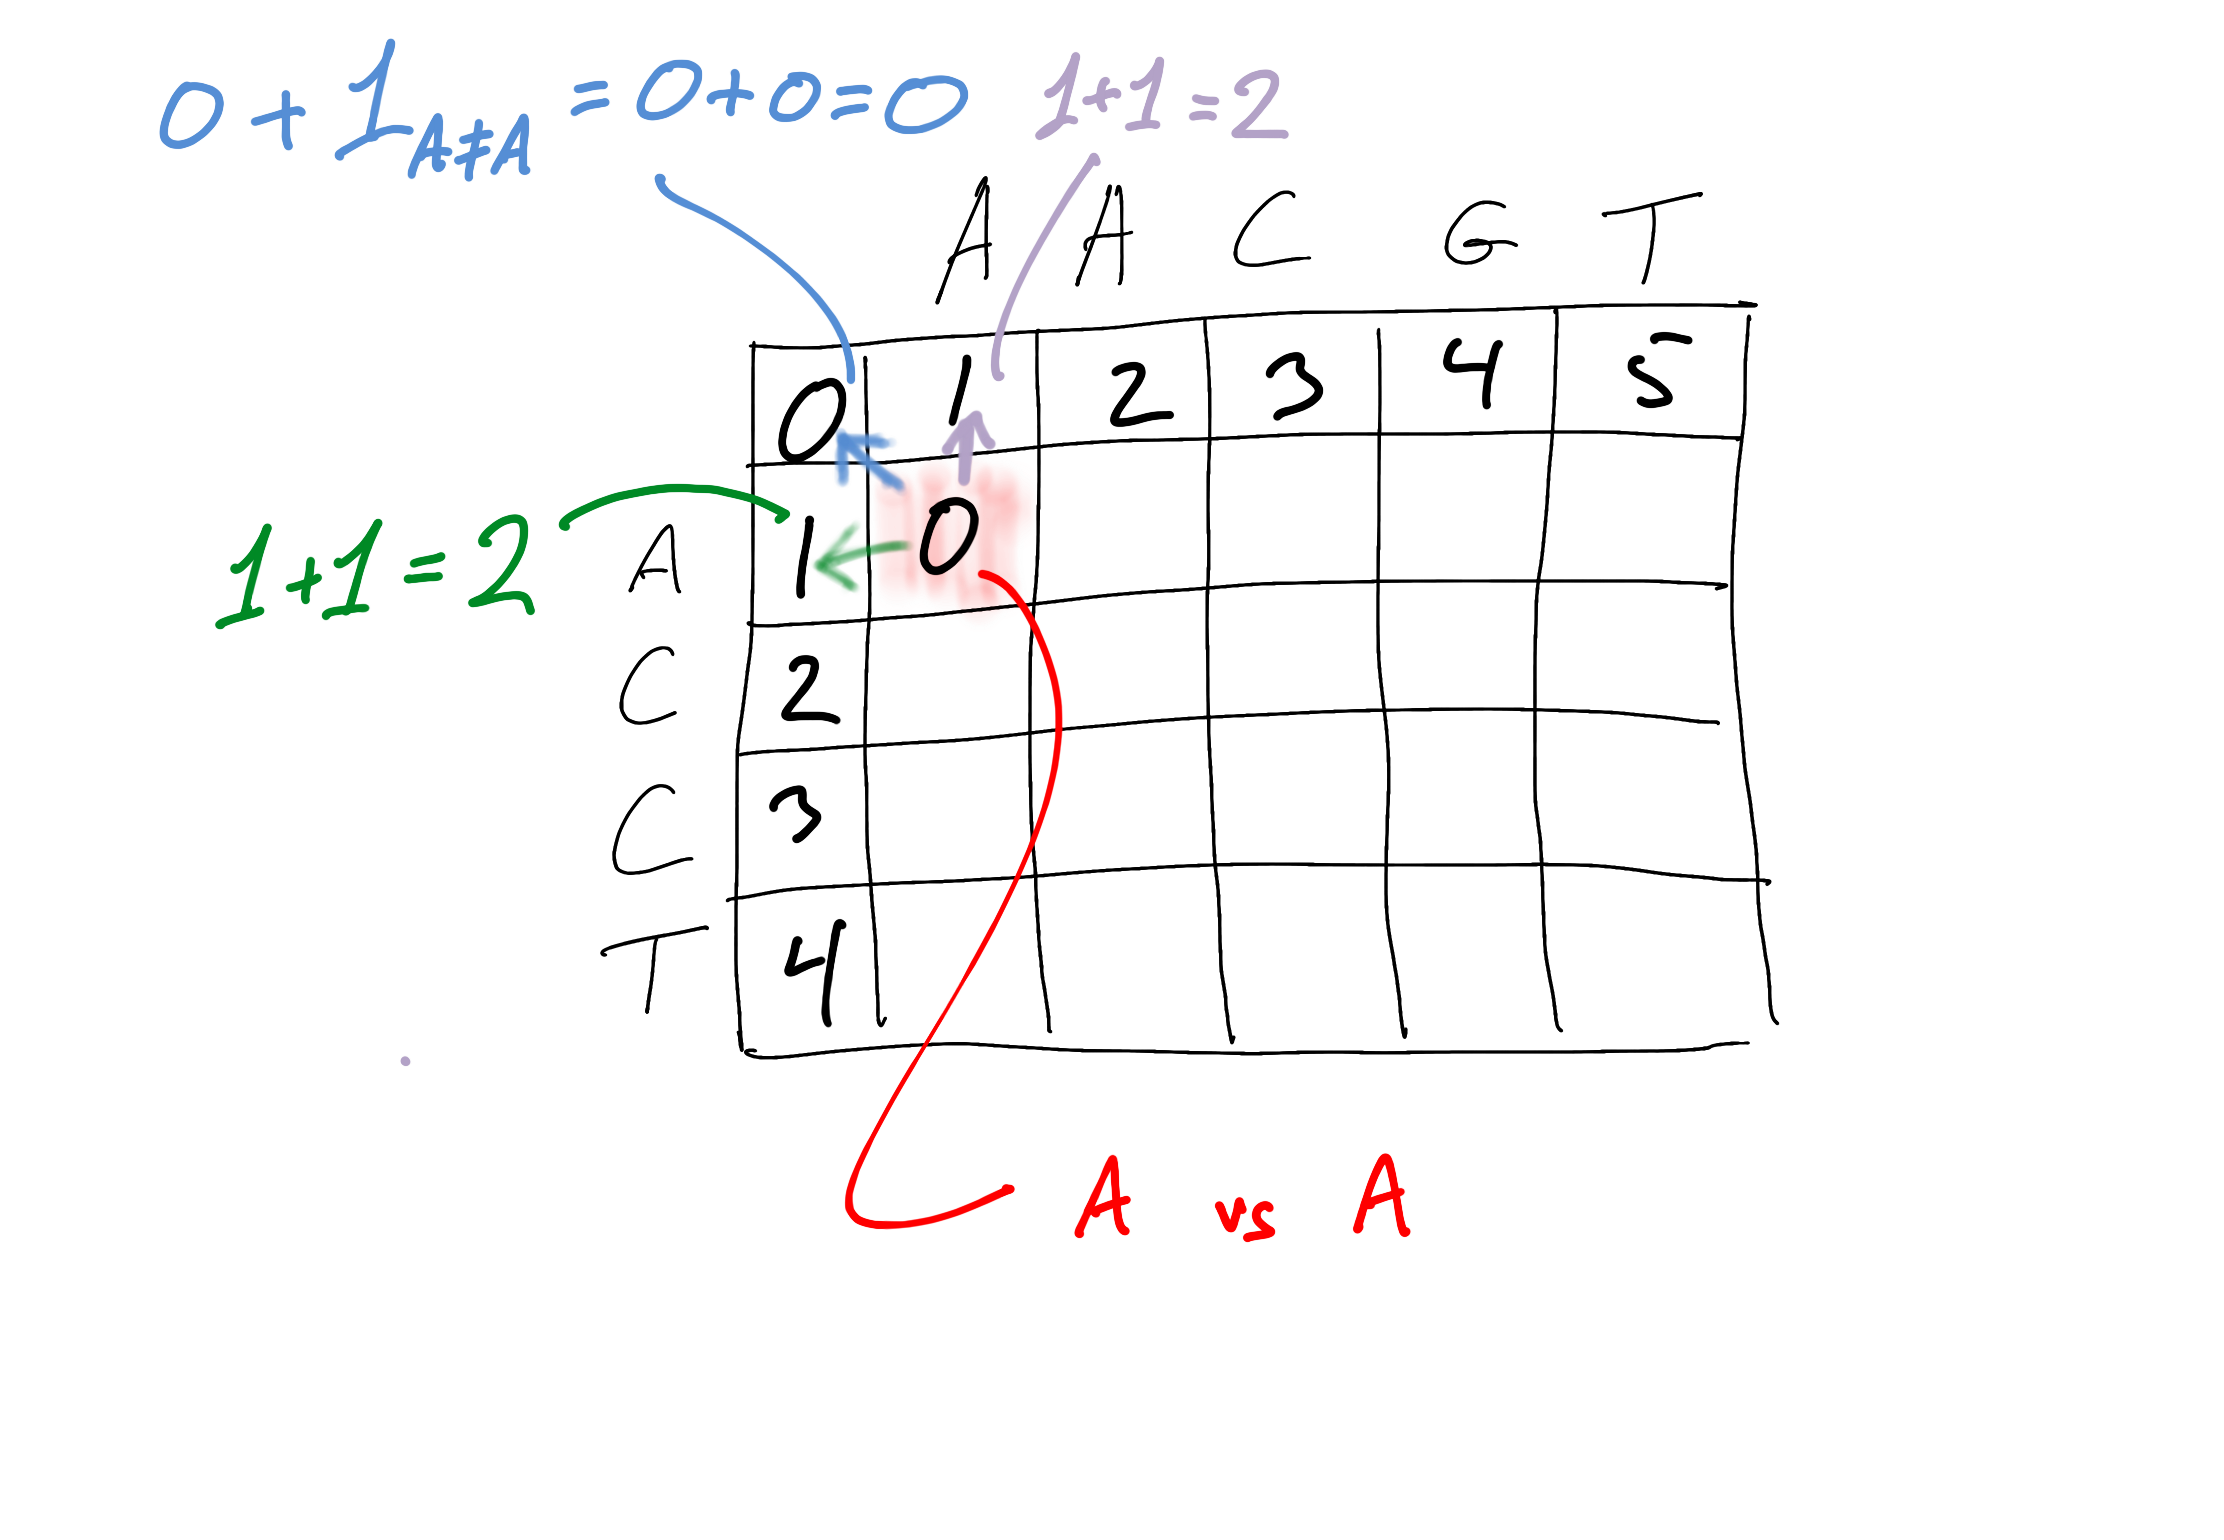 0 + 1 A≠A = 0+0=0 1+1=2
A A C G T
0 1 2 3 4 5
1+1=2 A 1 0
C 2
C 3
T 4
A vs A